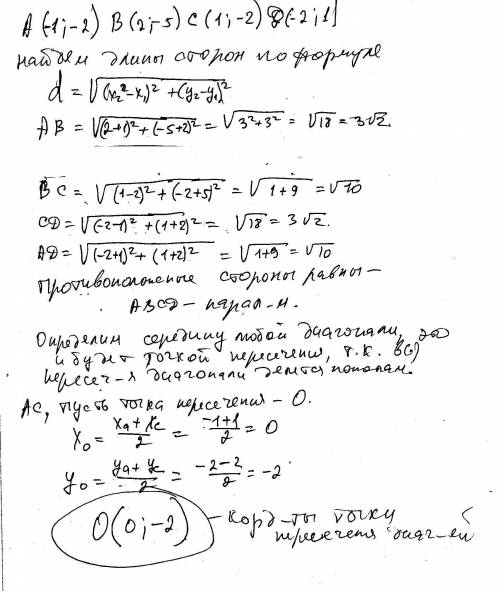 A (-1;-2) B (2;-5) C (1;-2) D(-2;1)
найдем длины сторон по формуле
d = √((x₂-x₁)² + (y₂-y₁)²
AB = √((2+1)² + (-5+2)²) = √(3²+3²) = √18 = 3√2.
BC = √((1-2)² + (-2+5)²) = √(1+9) = √10
CD = √((-2-1)² + (1+2)²) = √18 = 3√2.
AD = √((-2+1)² + (1+2)²) = √(1+9) = √10
противоположные стороны равны –
ABCD – парал-м.
Определим середину любой диагонали, это
и будет точкой пересечения, т.к. в (·)
пересеч-я диагонали делятся пополам.
AC, пусть точка пересечения – O.
x₀ = (xa + xc)/2 = (-1+1)/2 = 0
y₀ = (ya + yc)/2 = (-2-2)/2 = -2
O(0;-2) – коорд-ты точки
пересечения диаг-ей